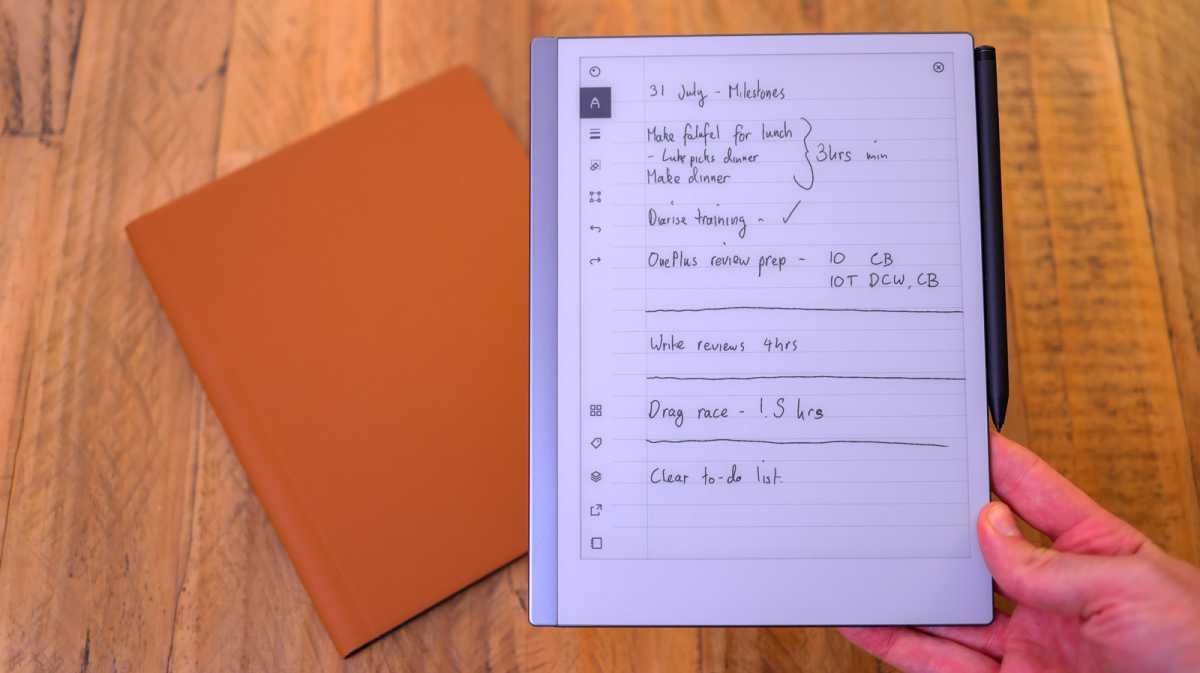 31 July - Milestones
Make falafel for lunch
- Luke picks dinner
Make dinner
3hrs min
Diarise training - ✓
OnePlus review prep - 10 CB
10T DCW, CB
Write reviews 4hrs
Drag race - 1.5 hrs
Clear to-do list.